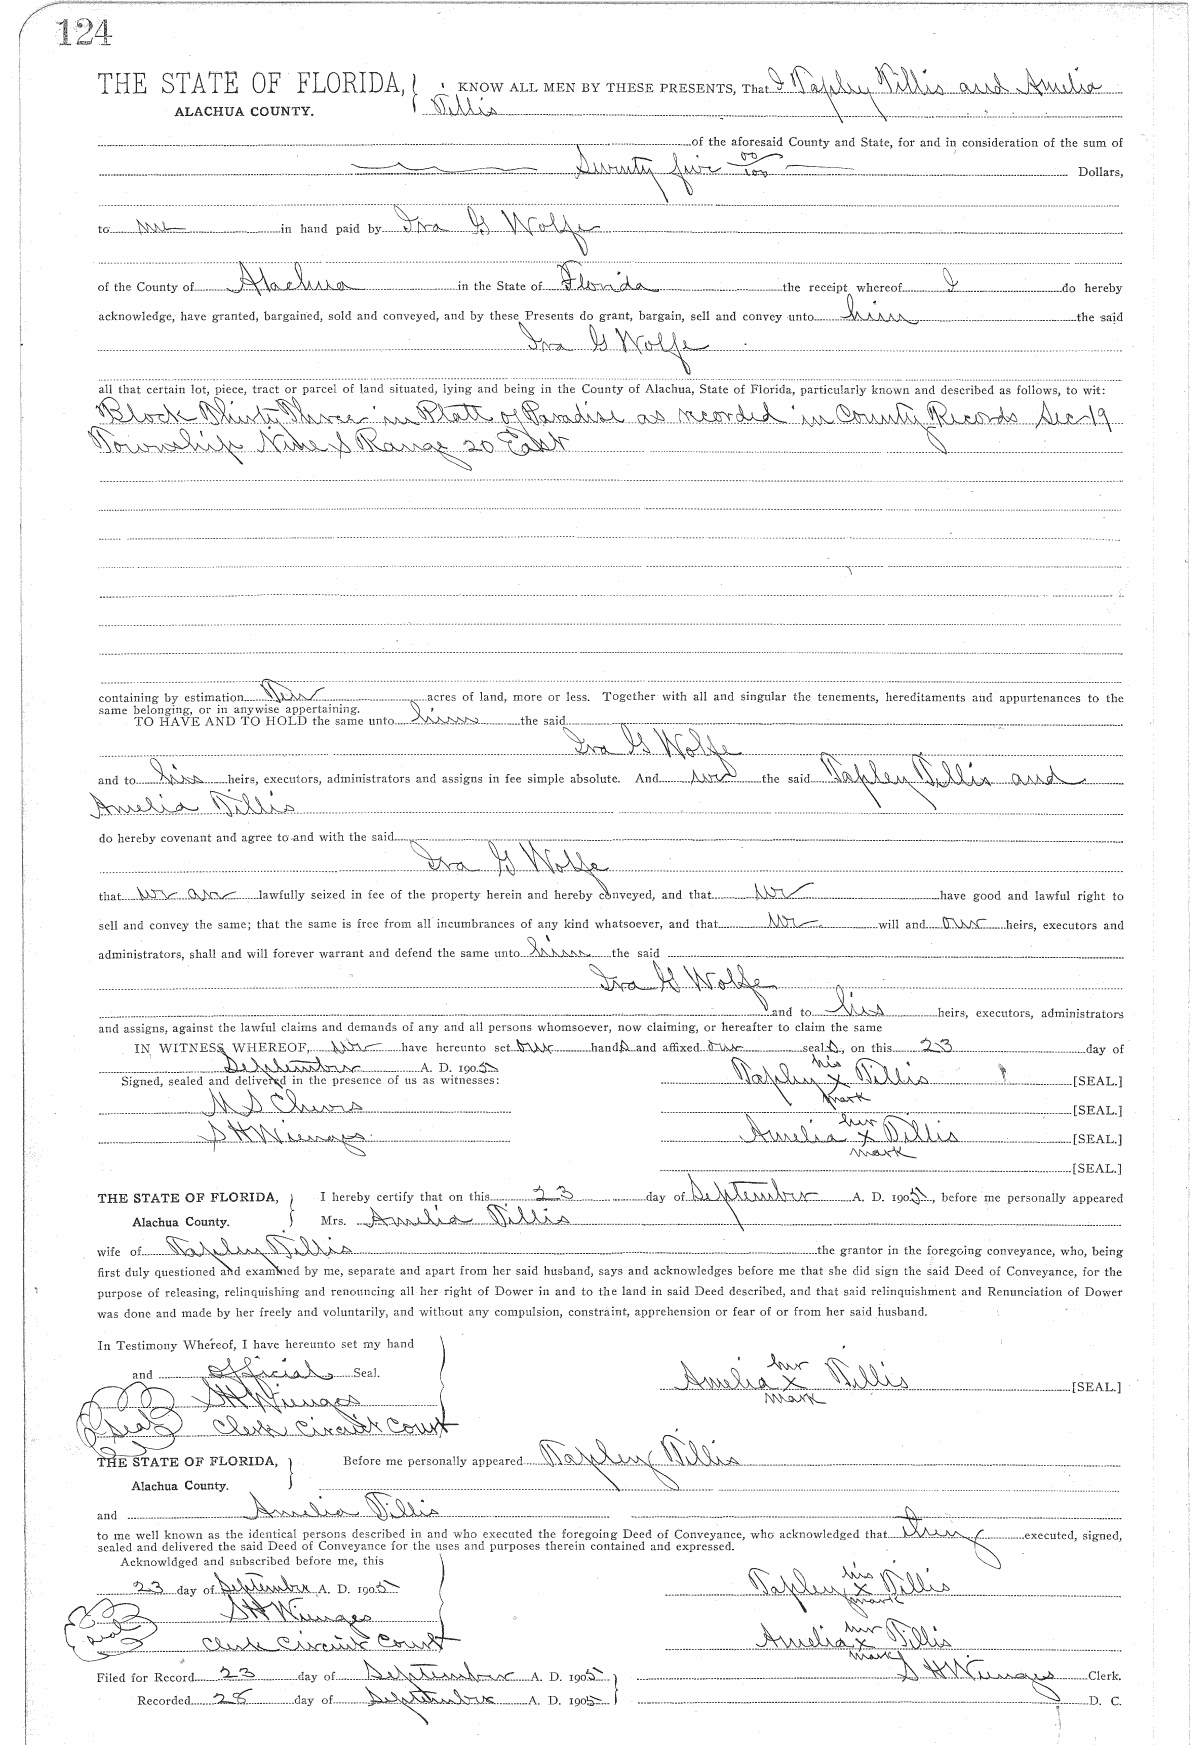 124
THE STATE OF FLORIDA, KNOW ALL MEN BY THESE PRESENTS, That I Tapley Tillis and Amelia
ALACHUA COUNTY. Tillis
of the aforesaid County and State, for and in consideration of the sum of
Seventy five 00/100 Dollars,
to me in hand paid by Ira G Wolfe
of the County of Alachua in the State of Florida the receipt whereof I do hereby
acknowledge, have granted, bargained, sold and conveyed, and by these Presents do grant, bargain, sell and convey unto him the said
Ira G Wolfe
all that certain lot, piece, tract or parcel of land situated, lying and being in the County of Alachua, State of Florida, particularly known and described as follows, to wit:
Block Thirty Three in Platt of Paradise as recorded in County Records Sec 19
Township Nine S Range 20 East
containing by estimation Ten acres of land, more or less. Together with all and singular the tenements, hereditaments and appurtenances to the
same belonging, or in anywise appertaining.
TO HAVE AND TO HOLD the same unto him the said
Ira G Wolfe
and to his heirs, executors, administrators and assigns in fee simple absolute. And we the said Tapley Tillis and
Amelia Tillis
do hereby covenant and agree to and with the said
Ira G Wolfe
that we are lawfully seized in fee of the property herein and hereby conveyed, and that we have good and lawful right to
sell and convey the same; that the same is free from all incumbrances of any kind whatsoever, and that we will and our heirs, executors and
administrators, shall and will forever warrant and defend the same unto him the said
Ira G Wolfe
and to his heirs, executors, administrators
and assigns, against the lawful claims and demands of any and all persons whomsoever, now claiming, or hereafter to claim the same
IN WITNESS WHEREOF, we have hereunto set our hands and affixed our seals, on this 23 day of
September A. D. 1905
his
Signed, sealed and delivered in the presence of us as witnesses: Tapley x Tillis [SEAL.]
mark
M S Cheves [SEAL.]
her
S H Wienges Amelia x Tillis [SEAL.]
mark
[SEAL.]
THE STATE OF FLORIDA, I hereby certify that on this 23 day of September A. D. 1905, before me personally appeared
Alachua County. Mrs. Amelia Tillis
wife of Tapley Tillis the grantor in the foregoing conveyance, who, being
first duly questioned and examined by me, separate and apart from her said husband, says and acknowledges before me that she did sign the said Deed of Conveyance, for the
purpose of releasing, relinquishing and renouncing all her right of Dower in and to the land in said Deed described, and that said relinquishment and Renunciation of Dower
was done and made by her freely and voluntarily, and without any compulsion, constraint, apprehension or fear of or from her said husband.
In Testimony Whereof, I have hereunto set my hand
her
and official Seal. Amelia x Tillis [SEAL.]
mark
S H Wienges
Seal Clerk Circuit Court
THE STATE OF FLORIDA, Before me personally appeared Tapley Tillis
Alachua County.
and Amelia Tillis
to me well known as the identical persons described in and who executed the foregoing Deed of Conveyance, who acknowledged that they executed, signed,
sealed and delivered the said Deed of Conveyance for the uses and purposes therein contained and expressed.
Acknowldged and subscribed before me, this
his
23 day of September A. D. 1905 Tapley x Tillis
mark
S H Wienges
her
Seal Clerk Circuit Court Amelia x Tillis
mark
Filed for Record 23 day of September A. D. 1905 S H Wienges Clerk.
Recorded 28 day of September A. D. 1905 D. C.